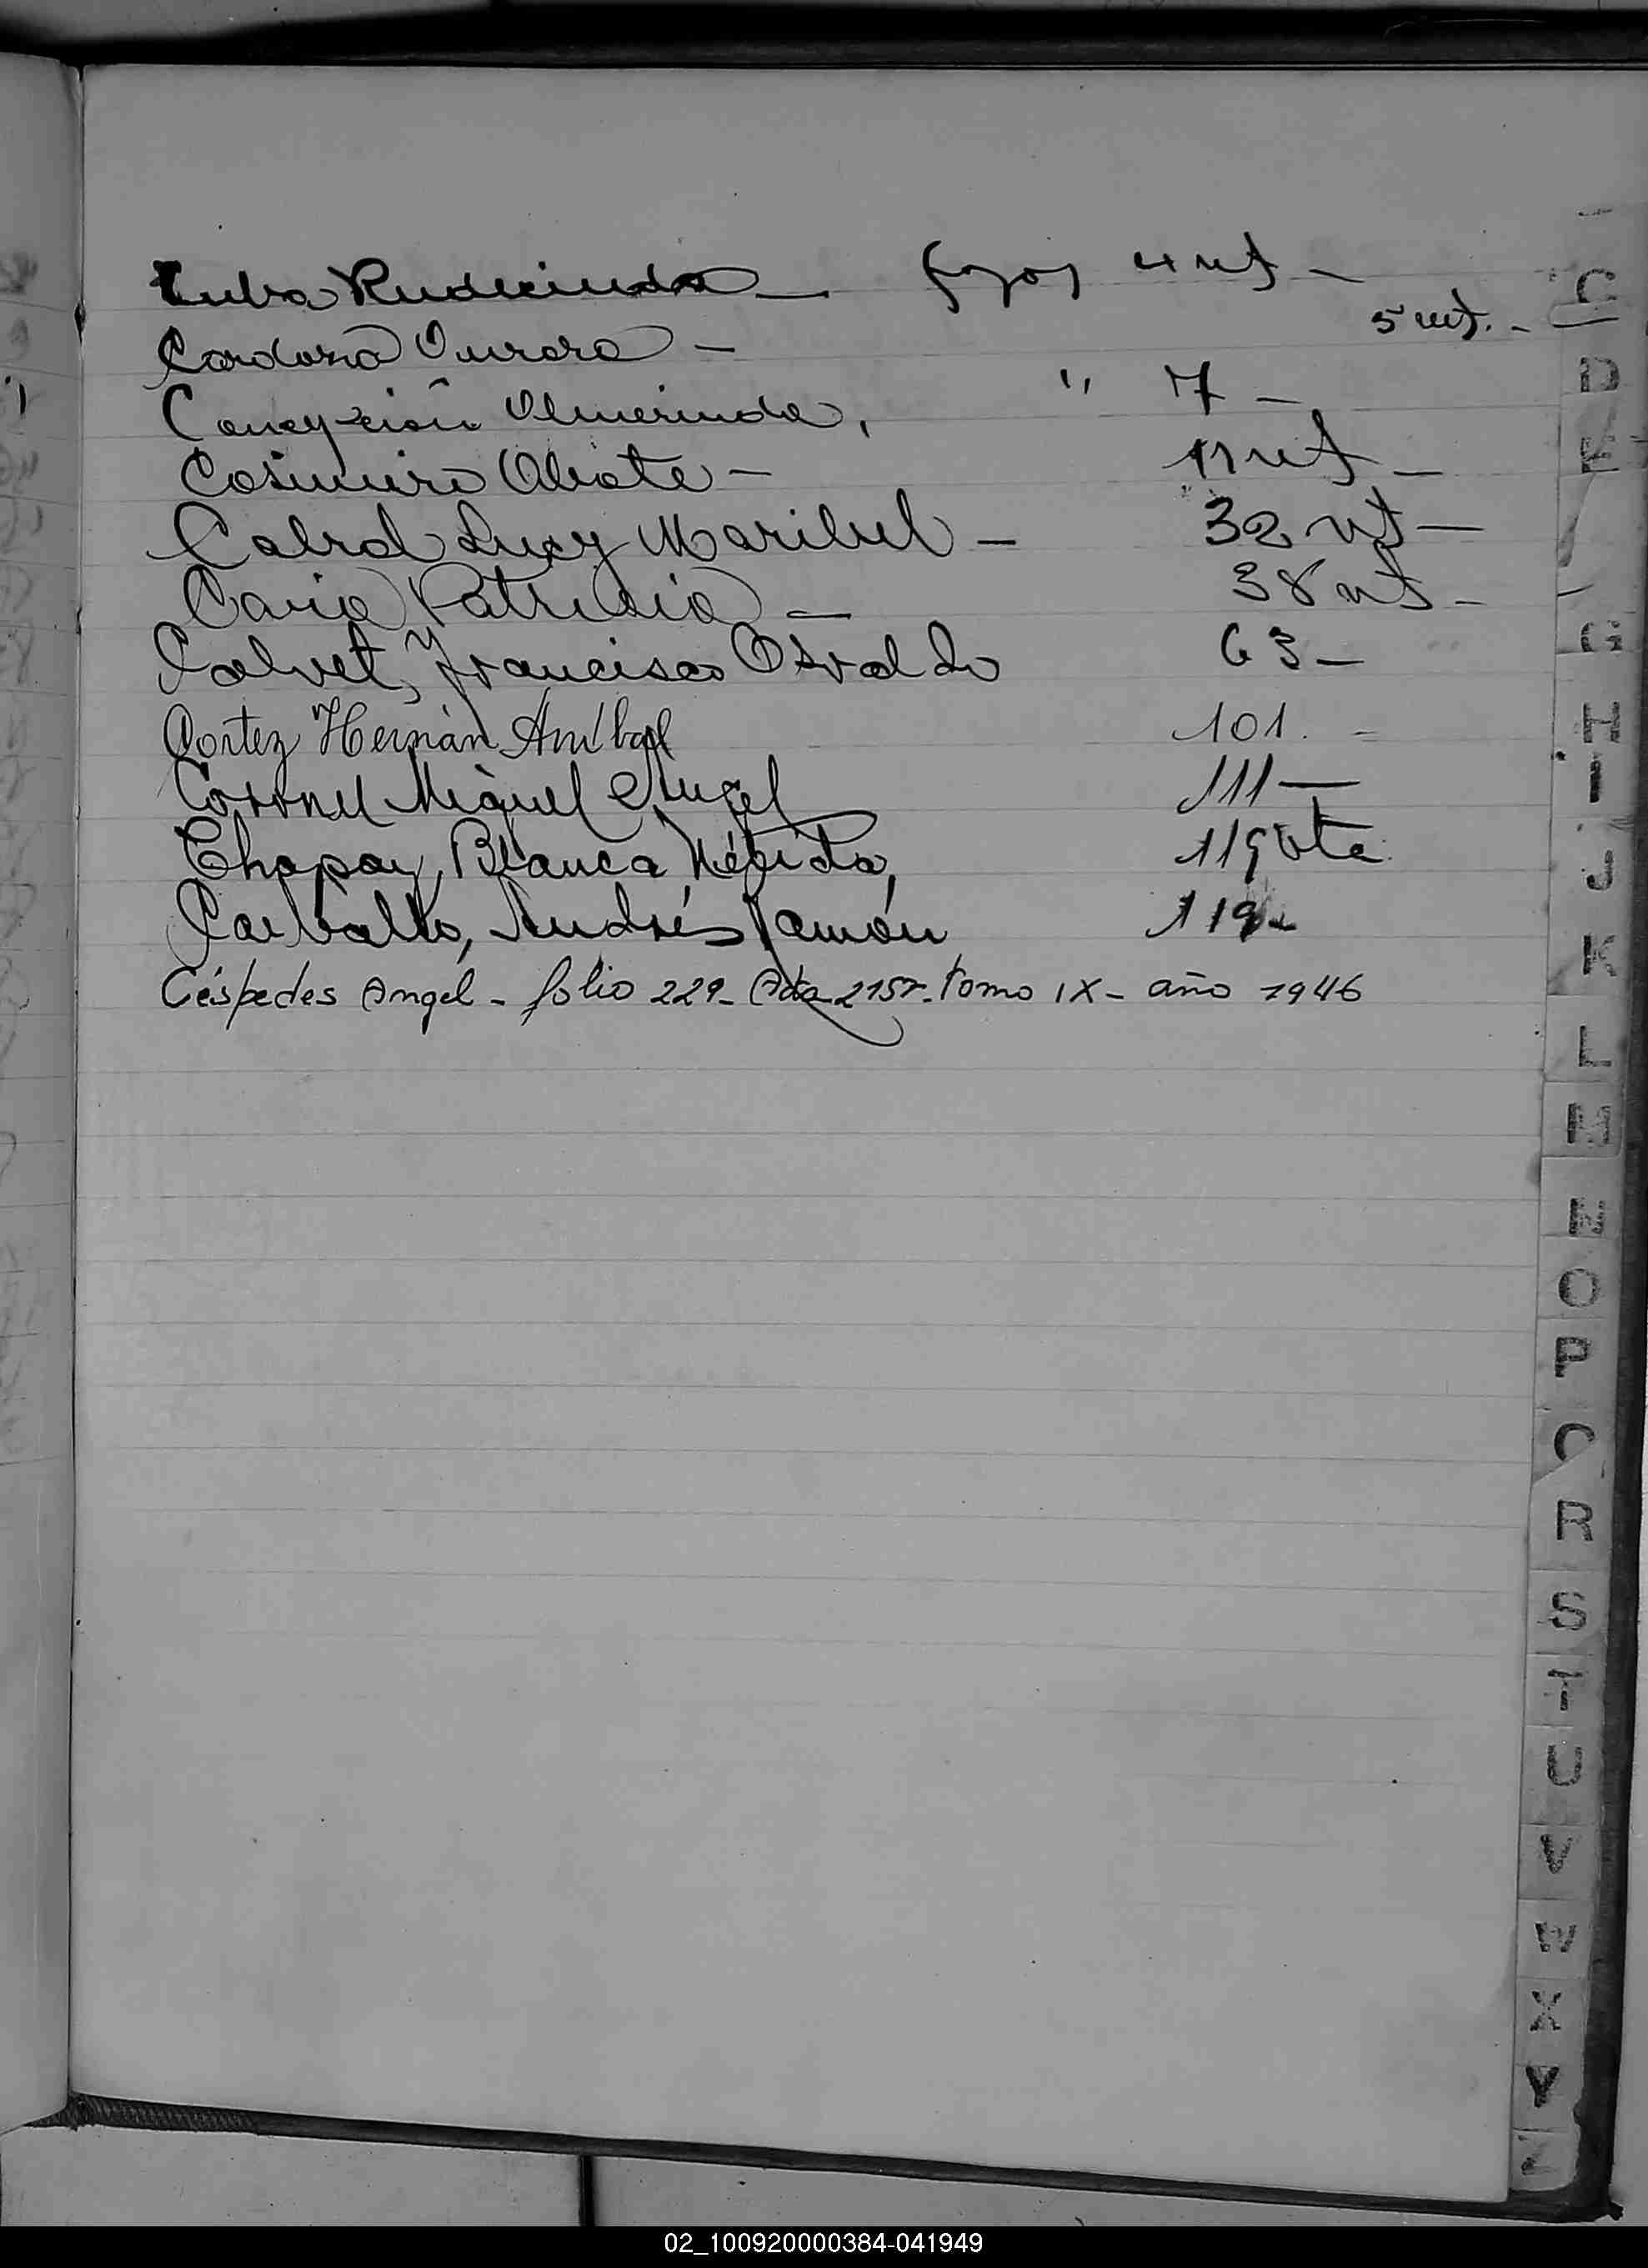 Cuba Rudecinda — fojas 4 vt -
Cardona Aurora - 5 vt. -
Concepción Almerinda, " 7 -
Casimiro Abate - 11 vt -
Cabral Lucy Maribel - 32 vt -
Caria Patricia - 38 vt -
Calvet, Francisco Osvaldo 63 -
Cortez Hernán Aníbal 101. -
Coronel Miguel Angel 111 -
Chapay, Blanca Nélida, 119 vta
Carballo, Andrés Ramón 119 -
Céspedes Angel - folio 229 - Acta 2157 - tomo IX - año 1946
C
D
E
H
I
J
K
L
M
N
O
P
R
S
T
U
V
W
X
Y
02_100920000384-041949